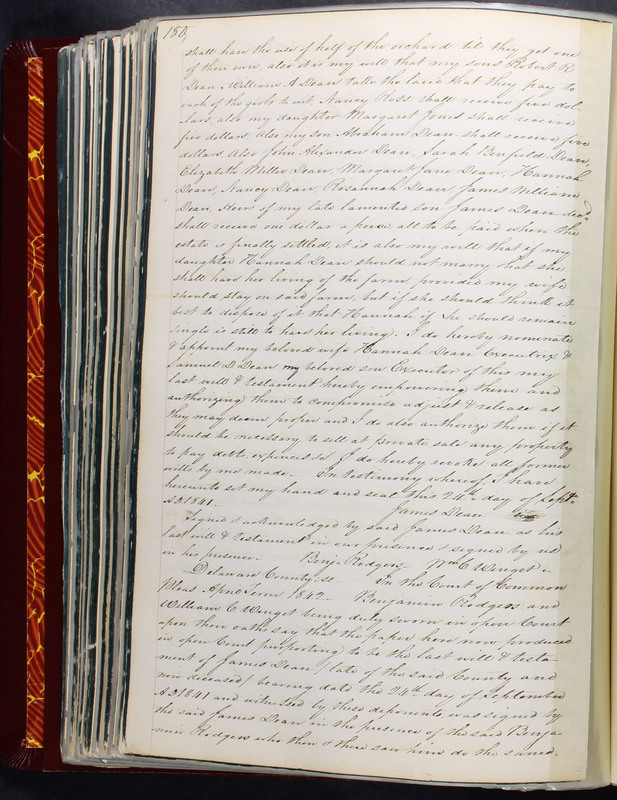 180,
shall have the use of half of the orchard til they get one
of their own, also it is my will that my sons Robert R
Dean & William A Dean take the land that they pay to
each of the girls to wit, Nancy Ross shall receive five dol
lars, also my daughter Margaret Jones shall receive
five dollars. Also my son Abraham Dean shall receive five
dollars Also John Alexander Dean, Sarah Benfield Dean,
Elizabeth Miller Dean, Margaret Jane Dean, Hannah
Dean, Nancy Dean, Rosannah Dean, James William
Dean, Heirs of my late lamented son James Dean decd
shall receive one dollar a piece all to be paid when the
estate is finally settled, it is also my will that if my
daughter Hannah Dean should not marry that she
shall have her living of the farm provided my wife
should stay on said farm, but if she should think it
best to dispose of it that Hannah if she should remain
single is still to have her living. I do hereby nominate
& appoint my beloved wife Hannah Dean Executrix &
Samuel D Dean my beloved son Executor of this my
last will & testament hereby empowering them and
authorizing them to compromise adjust & release as
they may deem proper and I do also authorize them if it
should be necessary to sell at private sale any property
to pay debts expences &c I do hereby revoke all former
wills by me made — In testimony whereof I have
hereunto set my hand and seal this 24th day of Septr
AD 1841. James Dean seal
Signed & acknowledged by said James Dean as his
last will & testament in our presence & signed by us
in his presence — Benj Rodgers — Wm C Winget —
Delaware County ss — In the Court of Common
Pleas April Term 1842 — Benjamin Rodgers and
William C Winget being duly sworn in open Court
upon their oaths say that the paper here now produced
in open Court purporting to be the last will & testa-
ment of James Dean (late of the said County and
now deceased) bearing date the 24th day of September
AD 1841 and witnessed by these deponents, was signed by
the said James Dean in the presence of the said Benja-
min Rodgers who then & there saw him do the same.